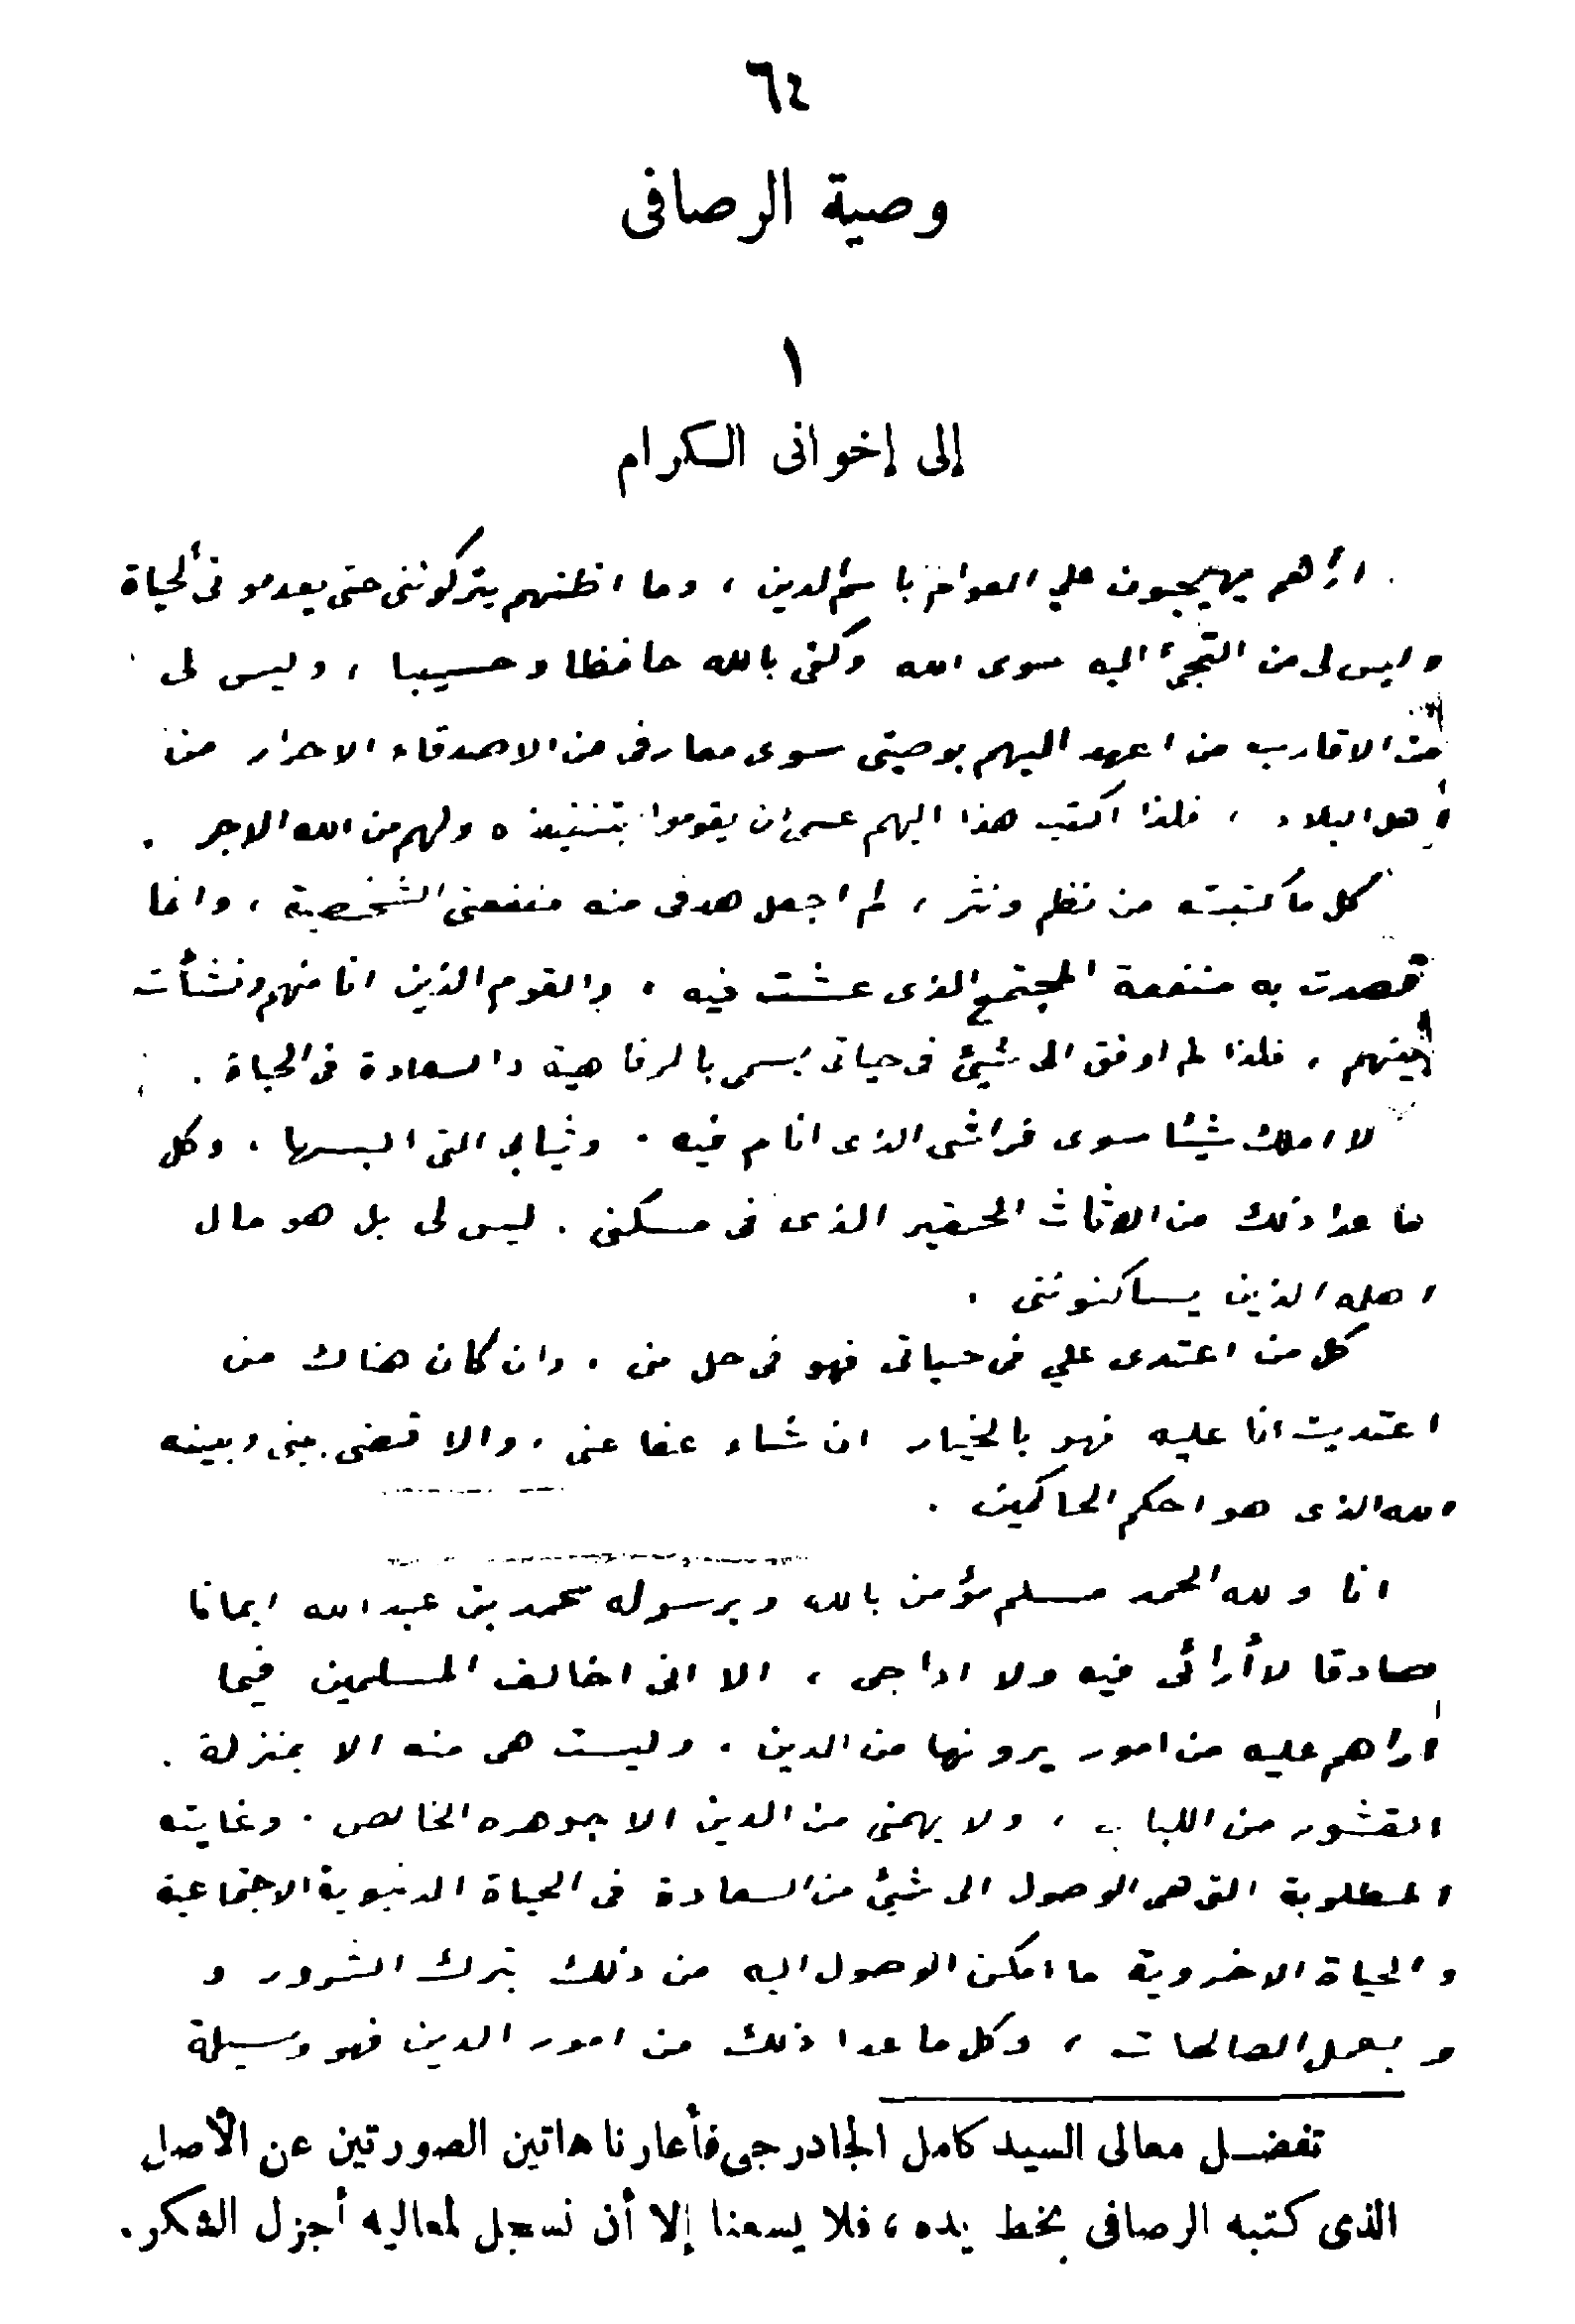 ٦٤
وصية الرصافى
١
إلى إخوانى الكرام
اراهم يهيجون علي العوام باسم الدين ، وما اظنهم يتركوننى حتى يعدمونى الحياة
وليس لى من التجئ اليه سوى الله وكفى بالله حافظا وحسيبا ، وليس لى
من الاقارب من اعهد اليهم بوصيتى سوى معارفى من الاصدقاء الاحرار من
أهل البلاد ، فلذا اكتب هذا اليهم عسى ان يقوموا بتنفيذه ولهم من الله الاجر .
كل ما كتبته من نظم ونثر ، لم اجعل هدفى منه منفعتى الشخصية ، وانما
قصدت به منفعة المجتمع الذى عشت فيه ، والقوم الذين انا منهم ونشأت
بينهم ، فلذا لم اوفق الى شيئ فى حياتى يسمى بالرفاهية والسعادة فى الحياة .
لا املك شيئا سوى فراشى الذى انام فيه . وثيابى التى البسها ، وكل
ما عدا ذلك من الاثاث الحقير الذى فى مسكنى . ليس لى بل هو مال
اهله الذين يساكنوننى .
كل من اعتدى علي فى حياتى فهو فى حل منى ، وان كان هناك من
اعتديت انا عليه فهو بالخيار ان شاء عفا عنى ، والا قضى بينى وبينه
الله الذى هو احكم الحاكمين .
انا ولله الحمد مسلم مؤمن بالله وبرسوله محمد بن عبدالله ايمانا
صادقا لا أرائى فيه ولا اداجى ، الا انى اخالف المسلمين فيما
اراهم عليه من امور يرونها من الدين ، وليست هى منه الا بمنزلة .
القشور من اللباب ، ولا يهمنى من الدين الا جوهره الخالص . وغايته
المطلوبة التى هى الوصول الى شيئ من السعادة فى الحياة الدنيوية الاجتماعية
والحياة الاخروية ما امكن الوصول اليه من ذلك بترك الشرور و
وبعمل الصالحات ، وكل ما عدا ذلك من امور الدين فهو وسيلة
تفضل معالى السيد كامل الجادرجى فأعارنا هاتين الصورتين عن الأصل
الذى كتبه الرصافى بخط يده ، فلا يسعنا إلا أن نسجل لمعاليه أجزل الشكر .